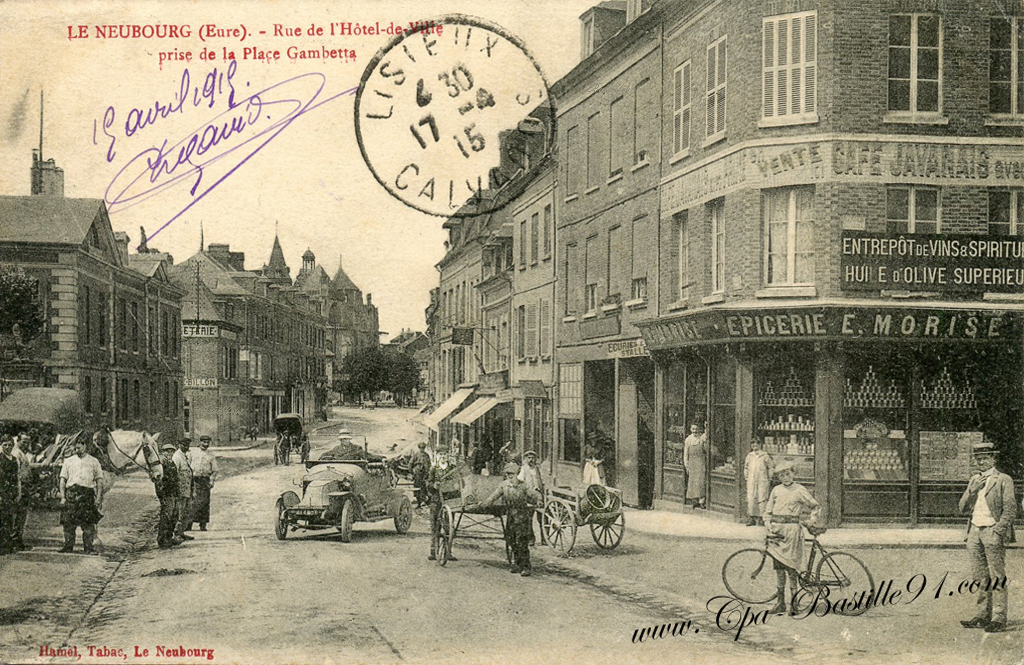 LE NEUBOURG (Eure). - Rue de l'Hôtel-de-Ville
prise de la Place Gambetta
15 avril 1915
LISIEUX
30
17 -4
15
CALVADOS
VENTE
CAFE JAVANAIS
ENTREPÔT DE VINS & SPIRITU
HUILE D'OLIVE SUPERIEU
EPICERIE E. MORISE
ETERIE
BILLON
www. Cpa-Bastille91.com
Hamel, Tabac, Le Neubourg